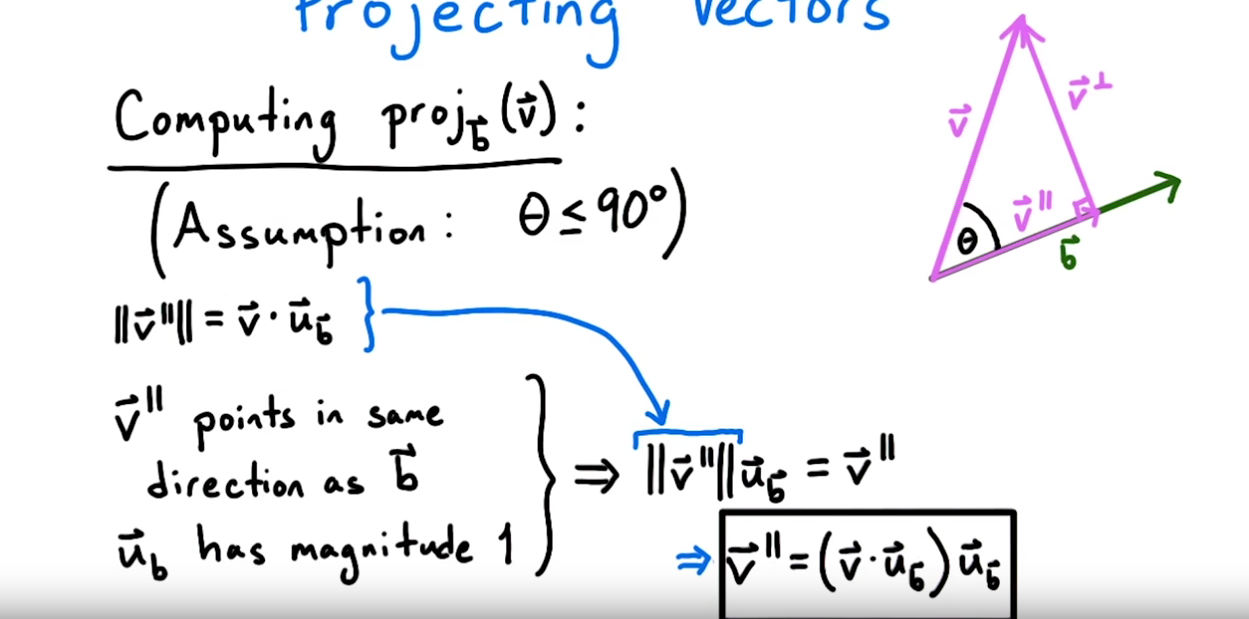 Projecting Vectors
Computing proj_b⃗ (v⃗) :
(Assumption : θ ≤ 90°)
‖v⃗^∥‖ = v⃗ · u⃗_b⃗ }
v⃗^∥ points in same
direction as b⃗
u⃗_b has magnitude 1
⇒ ‖v⃗^∥‖ u⃗_b⃗ = v⃗^∥
⇒ v⃗^∥ = (v⃗ · u⃗_b⃗) u⃗_b⃗
v⃗
v⃗^⊥
v⃗^∥
θ
b⃗